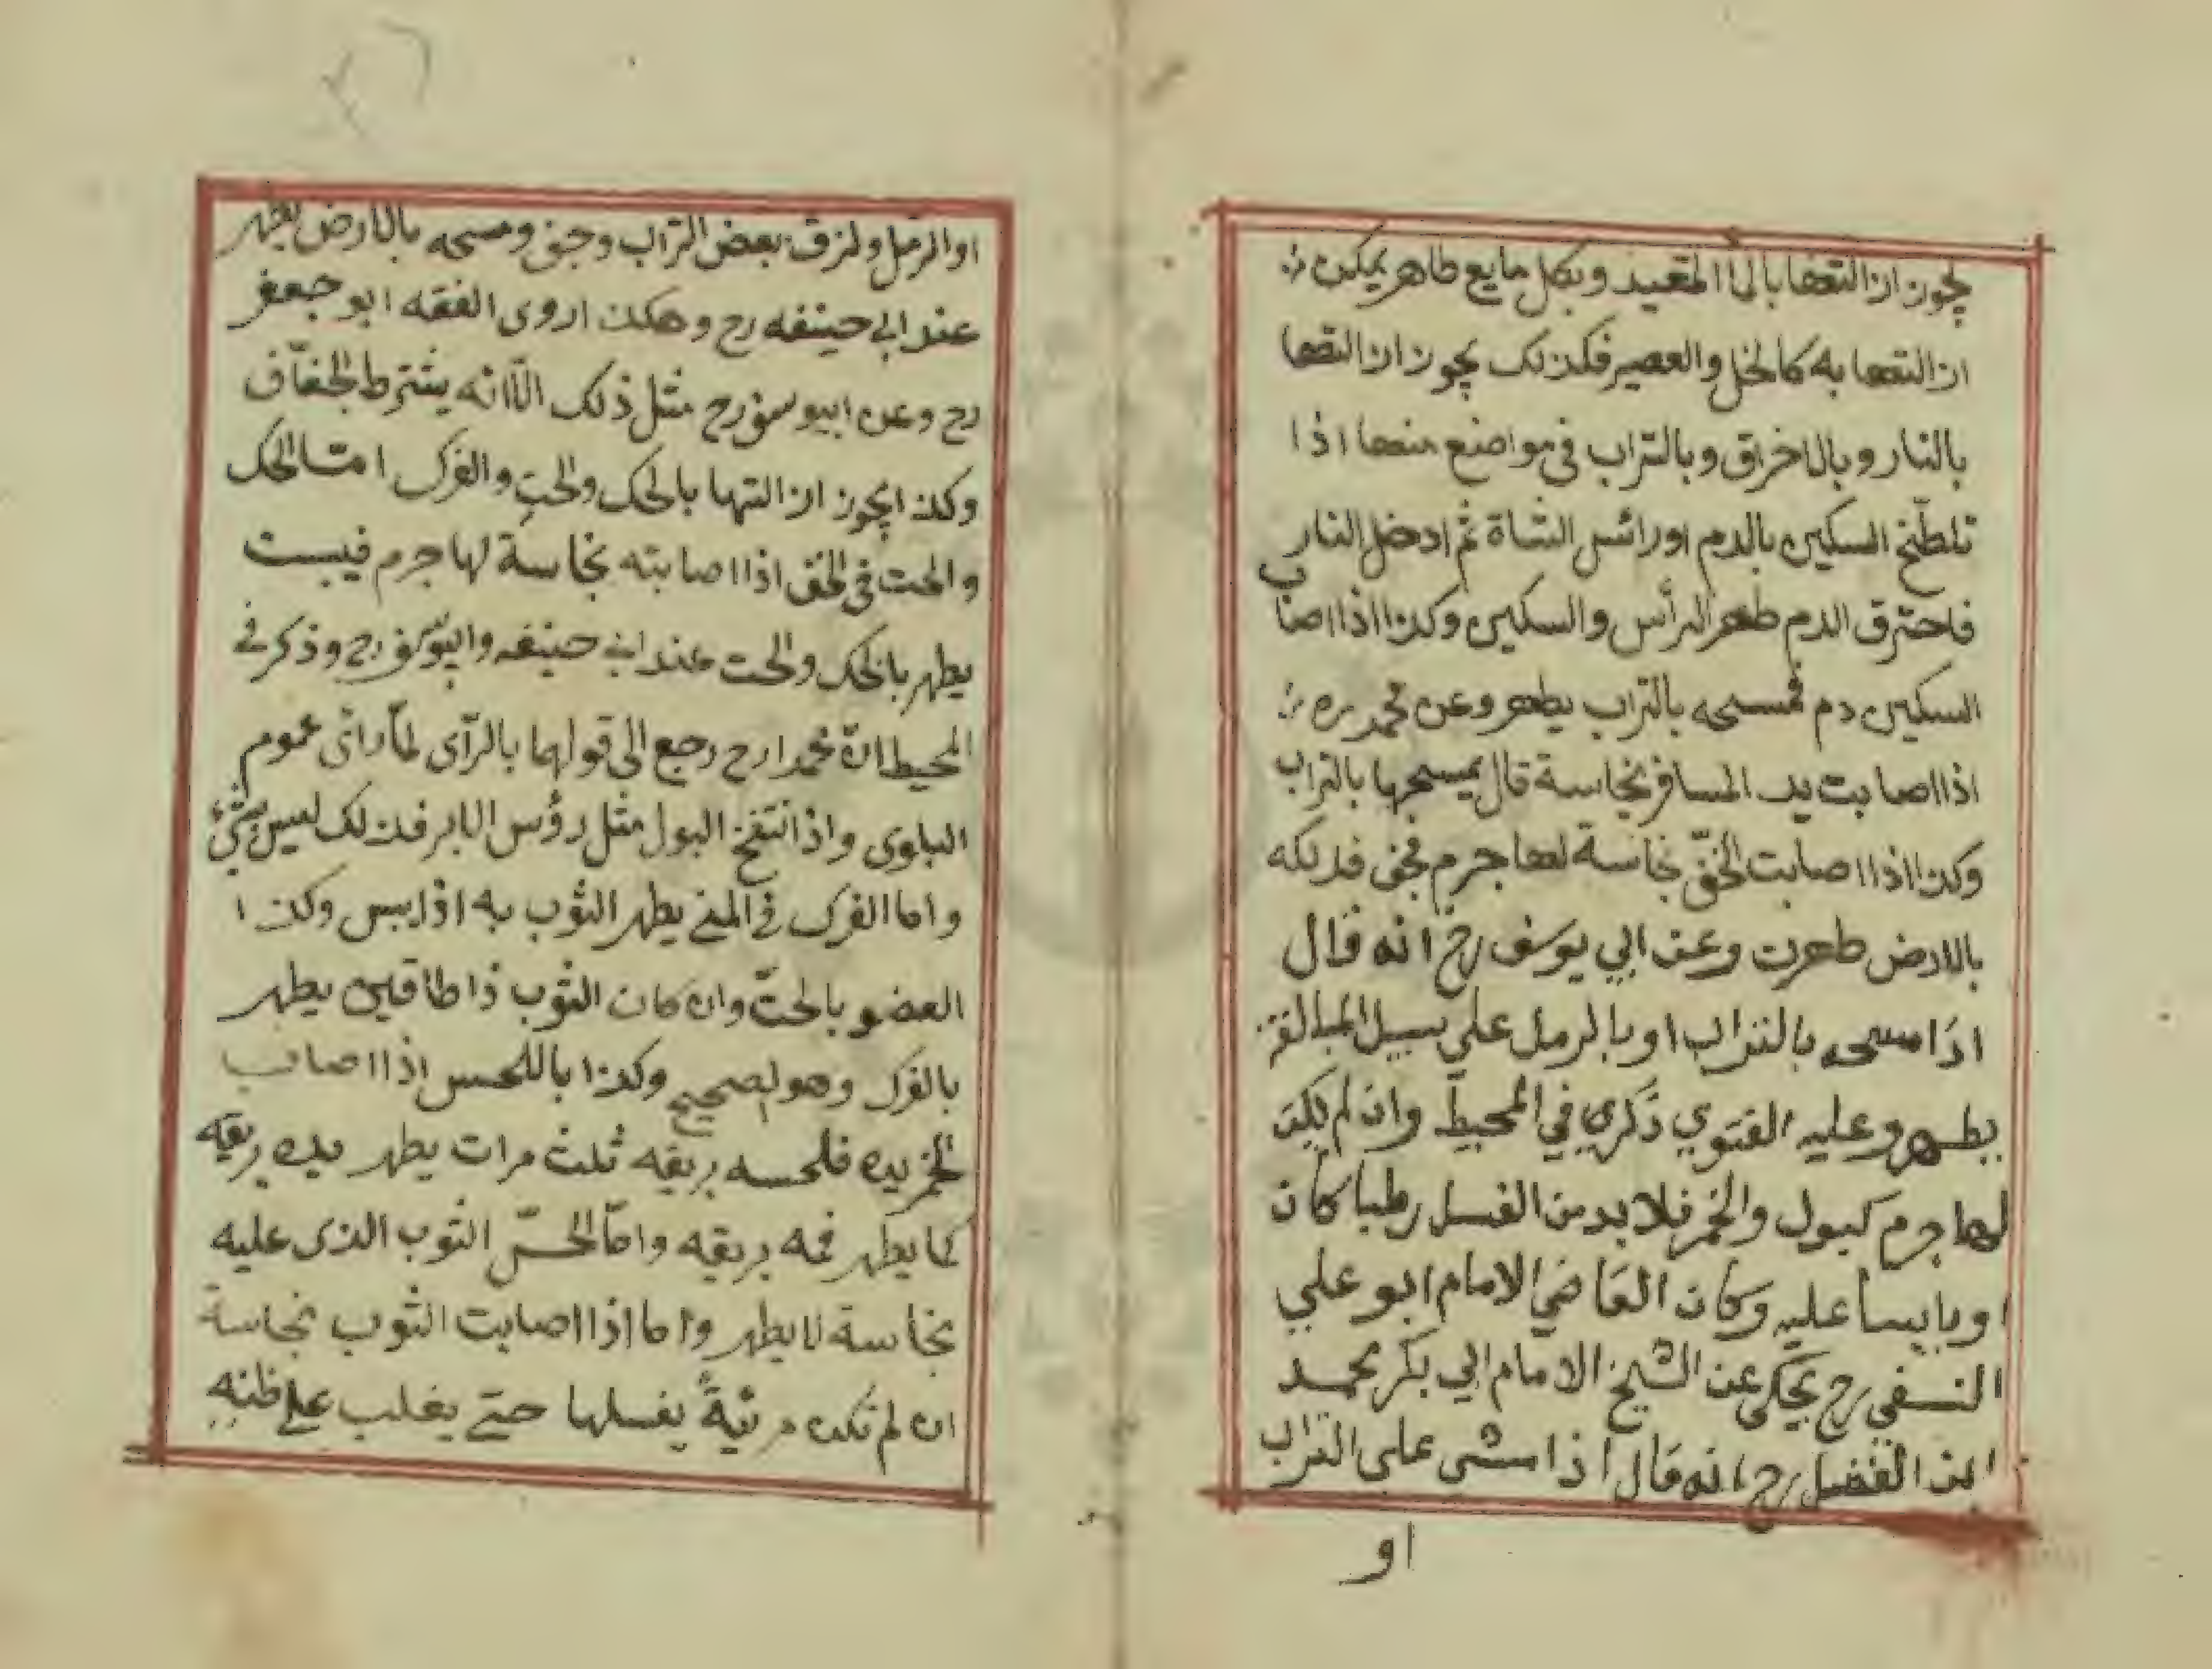 يجوز ازالتها بالماء المقيد وبكل مايع طاهر يمكن
ازالتها به كالخل والعصير فكذلك يجوز ازالتها
بالنار وبالاخراق وبالتراب في مواضع منها اذا
تلطّخ السكين بالدم اورائس الشاة ثم ادخل النار
فاحترق الدم طهر الرأس والسكين وكذا اذا اصاب
السكين دم فمسحه بالتراب يطهر وعن محمد ره
اذا اصابت يد المسافر نجاسة قال يمسحها بالتراب
وكذا اذا اصابت الخفّ نجاسة لها جرم فجف فدلكه
بالارض طهرت وعن ابي يوسف رح انه قال
اذا مسحه بالتراب او بالرمل علي سبيل المبالغة
يطهر وعليه الفتوي ذكري في المحيط وان لم يكن
لها جرم كبول والخمر فلا بد من الغسل رطبا كان
او يابسا عليه وكان القاضي الامام ابو علي
النسفي رح يحكى عن الشيخ الامام ابي بكر محمد
ابن الفضل رح انه قال اذا مشى على التراب
او
او الرمل ولزق بعض التراب وجف ومسحه بالارض يطهر
عند ابي حينفه رح وهكذ اروى الفقه ابو جعفر
رح وعن ابيوسف رح مثل ذلك الّا انه يشترط الجفاف
وكذا يجوز ازالتها بالحك والحت والفرك امّا الحك
والحت في الخف اذا اصابته نجاسة لها جرم فيبست
يطهر بالحك والحت عند ابي حينفه وابيوسف رح وذكر في
المحيط انّ محمدا رح رجع الى قولهما بالرّاى لمّا رائ عموم
البلوى واذ انتفخ البول مثل رؤس الابر فذلك ليس بشئ
واما الفرك في المني يطهر الثوب به اذا يبس وكذ ا
العضو بالحتّ وان كان الثوب ذا طاقين يطهر
بالفرك وهو الصحيح وكذا باللحس اذا اصاب
الخمر يده فلحسه بريقه ثلث مرات يطهر يده بريقه
كما يطهر فمه بريقه وامّا لحسّ الثوب الذى عليه
نجاسة لا يطهر واما اذا اصابت الثوب نجاسة
ان لم تكن مرئيةً يغسلها حتى يغلب على ظنه